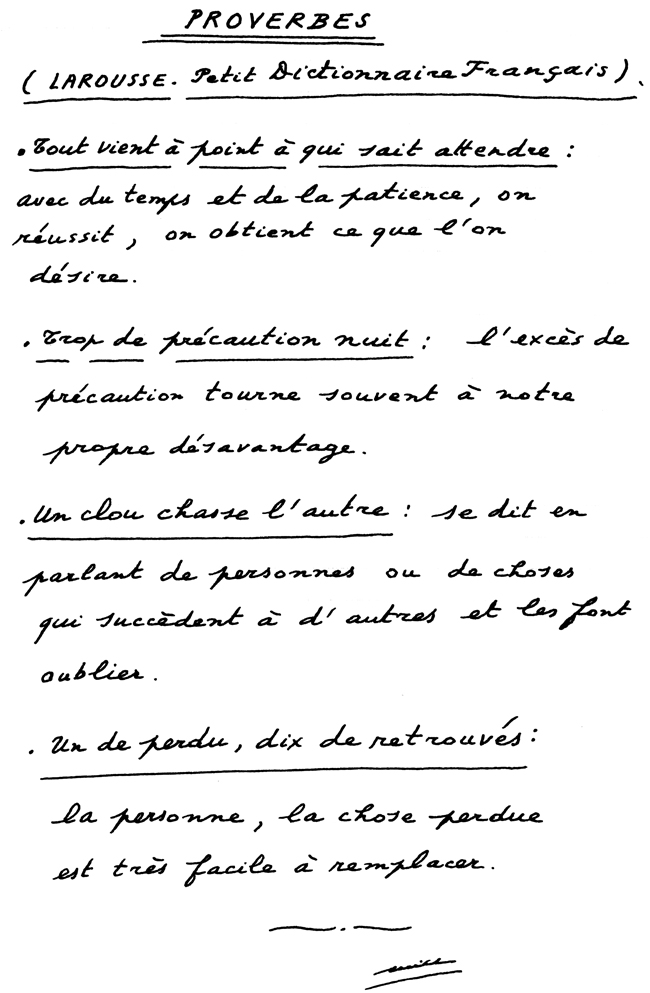 PROVERBES
( LAROUSSE. Petit Dictionnaire Français ).
. Tout vient à point à qui sait attendre :
avec du temps et de la patience, on
réussit, on obtient ce que l'on
désire.
. Trop de précaution nuit : l'excès de
précaution tourne souvent à notre
propre désavantage.
. Un clou chasse l'autre : se dit en
parlant de personnes ou de choses
qui succèdent à d'autres et les font
oublier.
. Un de perdu, dix de retrouvés :
la personne, la chose perdue
est très facile à remplacer.